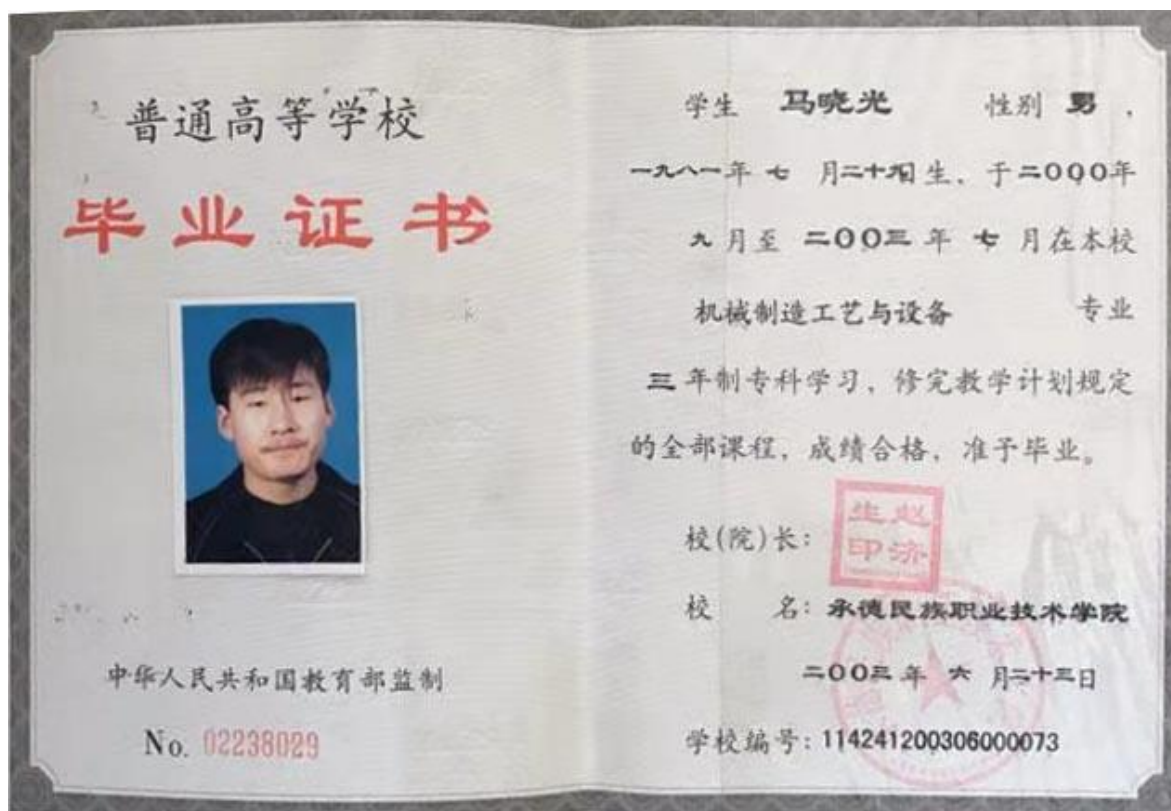 普通高等学校
毕业证书
中华人民共和国教育部监制
No. 02238029
学生 马晓光 性别 男,
一九八一年 七 月二十九日生, 于二〇〇〇年
九月至 二〇〇三 年 七 月在本校
机械制造工艺与设备 专业
三 年制专科学习, 修完教学计划规定
的全部课程, 成绩合格, 准予毕业。
校(院)长: 赵济生印
校 名: 承德民族职业技术学院
二〇〇三 年 六 月二十三日
学校编号: 114241200306000073